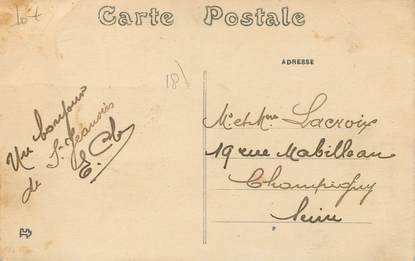 Carte Postale
ADRESSE
Un bonjour
de St Jeanvrin
Mr et Mme Lacroix
19 rue Mabilleau
Champigny
Seine